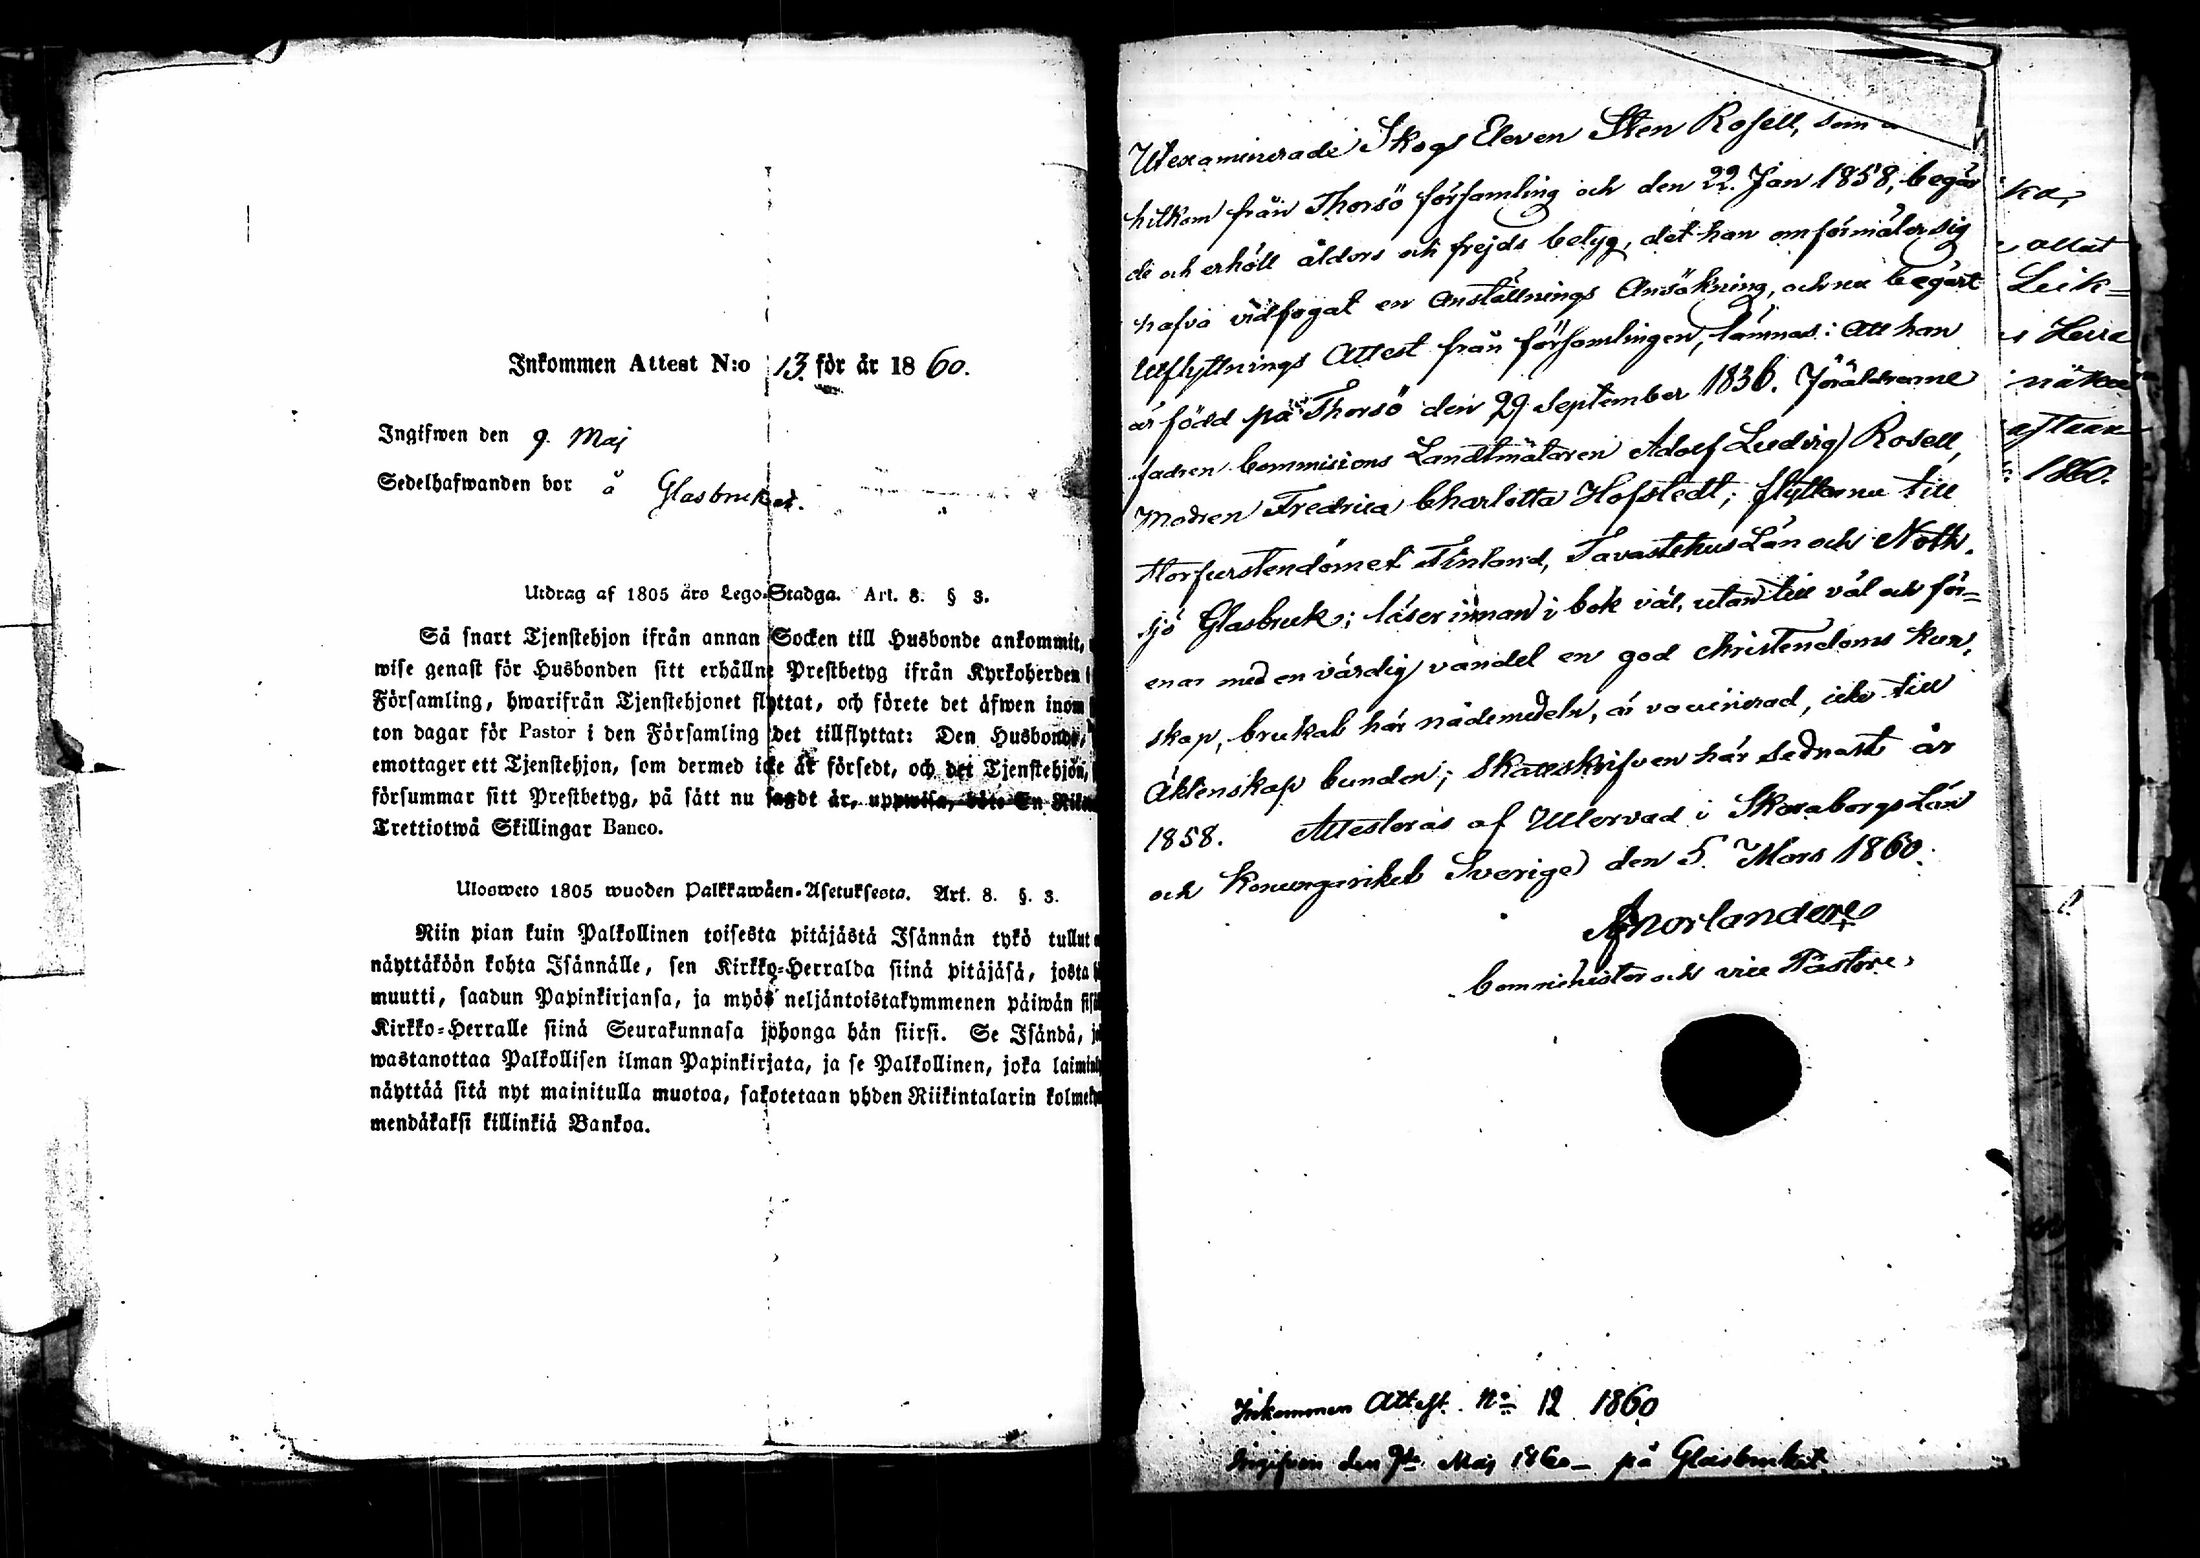 Inkommen Attest N:o 13 för år 1860.
Ingifwen den 9. Maj
Sedelhafwanden bor å Glasbruket.
Utdrag af 1805 års Lego-Stadga. Art. 8. § 3.
Så snart Tjenstehjon ifrån annan Socken till Husbonde ankommit,
wise genast för Husbonden sitt erhållne Prestbetyg ifrån Kyrkoherden i
Församling, hwarifrån Tjenstehjonet flyttat, och förete det äfwen inom
ton dagar för Pastor i den Församling det tillflyttat: Den Husbonde,
emottager ett Tjenstehjon, som dermed icke är försedt, och det Tjenstehjon,
försummar sitt Prestbetyg, på sätt nu sagdt är, uppwisa, böte En Riks
Trettiotwå Skillingar Banco.
Ulosweto 1805 wuoden Palkkawäen-Asetuksesta. Art. 8. §. 3.
Niin pian kuin Palkollinen toisesta pitäjästä Isännän tykö tullut
näyttäköön kohta Isännälle, sen Kirkko-Herralda siinä pitäjäsä, josta
muutti, saadun Papinkirjansa, ja myös neljäntoistakymmenen päiwän sisä
Kirkko-Herralle siinä Seurakunnasa johonga hän siirsi. Se Isändä,
wastanottaa Palkollisen ilman Papinkirjata, ja se Palkollinen, joka laimin
näyttää sitä nyt mainitulla muotoa, sakotetaan yhden Riikintalarin kolme
mendäkaksi killinkiä Bankoa.
Utexaminerade Skogs Eleven Sten Rosell, som
hitkom från Thorsö församling och den 22. Jan 1858, begär
de och erhöll ålders och frejds betyg, det han omförmäler sig
hafva vidfogat en Anställnings Ansökning, och nu begärt
Utflyttnings Attest från församlingen, lämnas: Att han
är född på Thorsö den 29 September 1836. Föräldrarne
fadren Commisions Landtmätaren Adolf Ludvig Rosell,
Modren Fredrica Charlotta Hofstedt; flyttar nu till
Storfurstendömet Finland, Tavastehus Län och Noth.
sjö Glasbruk; läser innan i bok väl, utan till väl och för=
enar med en värdig vandel en god christendoms kun,
skap, brukat här nådemedeln, är vaccinerad, icke till
Äktenskap bunden; Skatteskrifven här sednast år
1858. Attesteras af Ullervad i Skaraborgs Län
och Konungariket Sverige den 5. Mars 1860.
Norlander
Comminister och vice Pastor.
Inkommen Attest No 12 1860
Ingifven den 9de Maj 1860 – på Glasbruket.
ka,
allat
Leik=
Herra
1860.